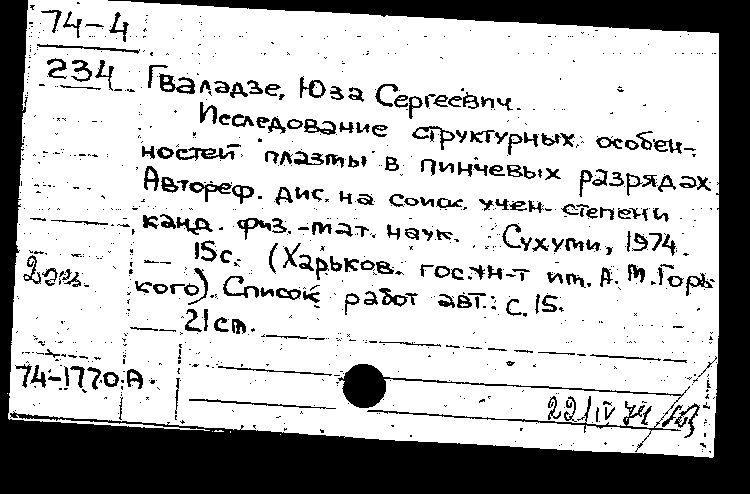 74-4
234
Гваладзе, Юза Сергеевич.
Исследование структурных особен-
ностей плазмы в пинчевых разрядах.
Автореф. дис. на соиск. учен. степени
канд. физ.-мат. наук. Сухуми, 1974.
15 с. (Харьков. гос. ун-т им. А. М. Горь-
кого). Список работ авт.: с. 15.
21 см.
74-1770А
22/IV 74